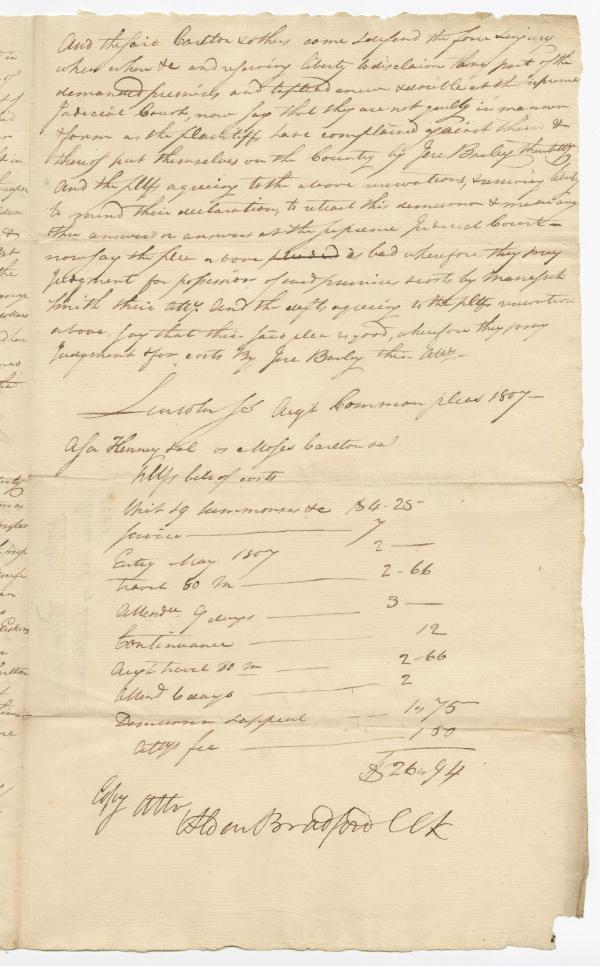 And the said Carlton & others come & defend the force & injury
when where &c and reserving liberty to disclaim any part of the
demanded premises and to plead anew & double at the Supreme
Judicial Court, now say that they are not guilty in manner
& form as the plaintiffs have complained against them &
thereof put themselves on the Country by Jere Bailey their Atty
And the pltfs agreeing to the above reservations, & reserving liberty
to mend their declaration, to retract this demurrer & make any
other answer or answers at the Supreme Judicial Court –
now say the plea above pleaded is bad wherefore they pray
Judgment for possession of said premises & costs by Manasseh
Smith their atty. And the defts agreeing to the pltfs reservation
above, say that their said plea is good, wherefore they pray
Judgment & for costs By Jere Bailey their Atty –
Lincoln Ss Augt Common pleas 1807 –
Asa Henney & al vs Moses Carlton & al
Pltfs bill of costs
Writ 19 summonses &c $4-25
Service 7
Entry May 1807 2 –
travel 80 m 2-66
Attendce 9 days 3 –
Continuance 12
Augt travel 80 m 2-66
Attend 6 days 2
Demurrer & appeal 1,,75
Attys fee 1 50
$26,,94
Copy Attr
Alden Bradford Clk